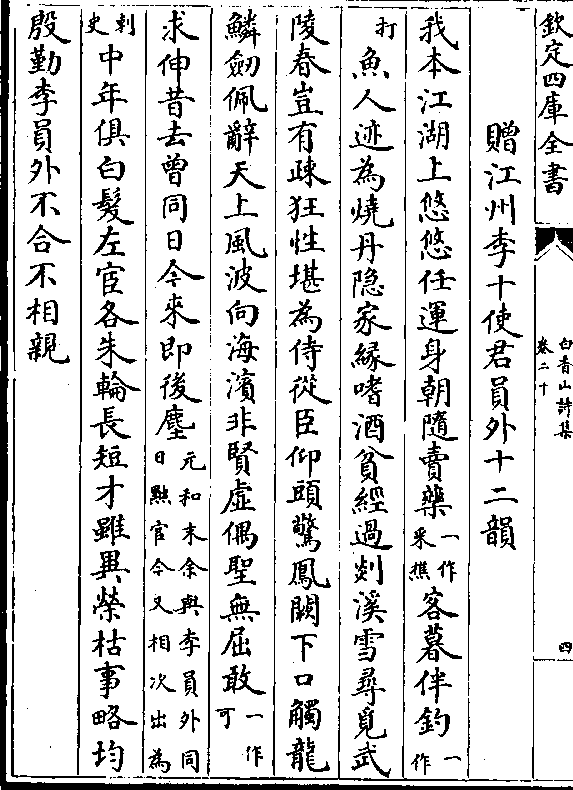 欽定四庫全書
白香山詩集
卷二十
四
贈江州李十使君員外十二韻
我本江湖上悠悠任運身朝隨賣藥一作采樵客暮伴釣一作
打魚人迹為燒丹隐家緣嗜酒貧經過剡溪雪尋覓武
陵春豈有疎狂性堪為侍從臣仰頭驚鳳闕下口觸龍
鱗劒佩辭天上風波向海濱非賢虚偶聖無屈敢一作可
求伸昔去曾同日今來即後塵元和末余與李員外同日黜官今又相次出為
刺史中年俱白髮左宦各朱輪長短才雖異榮枯事略均
殷勤李員外不合不相親